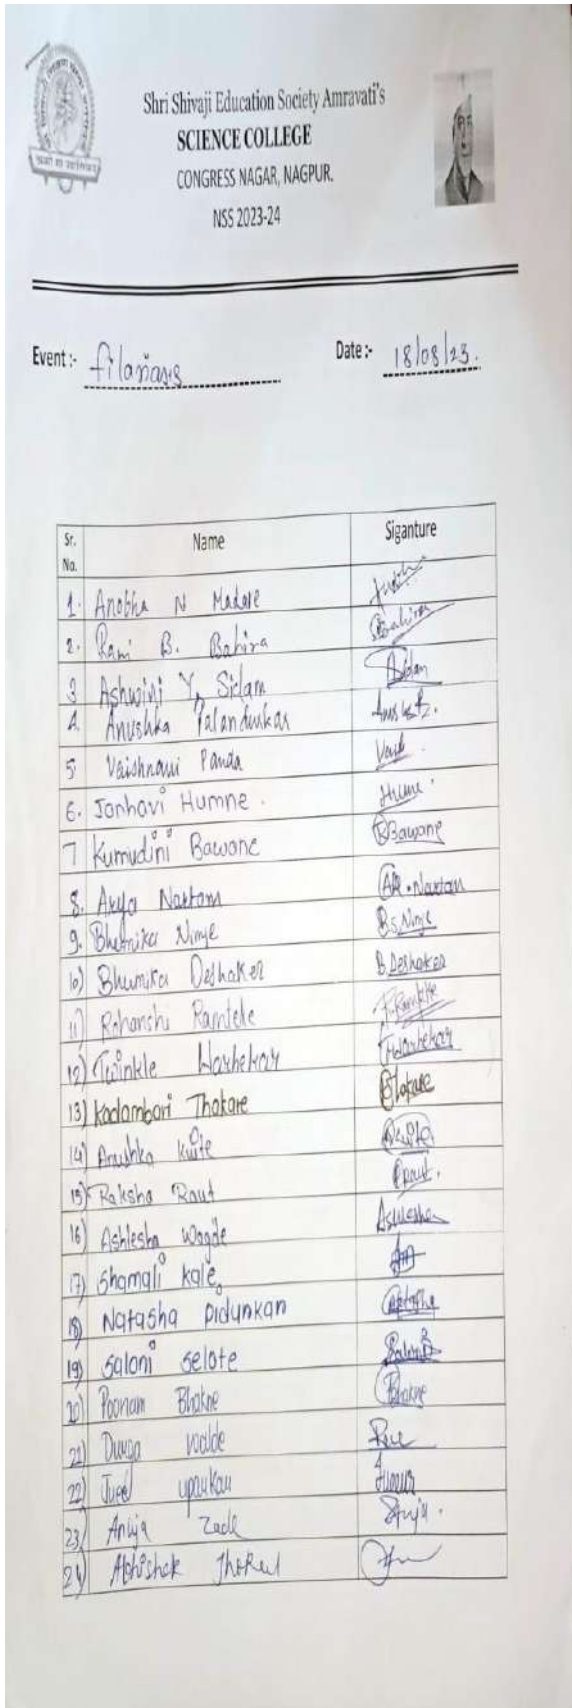 Shri Shivaji Education Society Amravati's
SCIENCE COLLEGE
CONGRESS NAGAR, NAGPUR.
NSS 2023-24
Event :- filariasis Date :- 18/08/23.
Sr. No. Name Siganture
1. Anobha N Madare
2. Rani B. Bahira Bahira
3 Ashwini Y. Sidam Sidam
4. Anushka Palandurkar
5. Vaishnavi Panda
6. Janhavi Humne. Hume.
7 Kumudini Bawone KBawone
8. Arya Naxtam AR. Naxtam
9. Bhumika Ninje B.S.Ninje
10) Bhumika Deshaker B.Deshaker
11) Rohanshi Ramteke R.Ramteke
12) Twinkle Warhekar TWarhekar
13) Kadambari Thakare Thakare
14) Anushka kuite
15) Raksha Raut Rraut.
16) Ashlesha Wagde Ashlesha
17) Shamali kale
18) Natasha Didunkan Natasha
19) Saloni selote Saloni
20) Poonam Bhakne Bhakne
21) Durga
22) Juee upaukau
23) Anuja Zade Anuja.
24) Abhishek